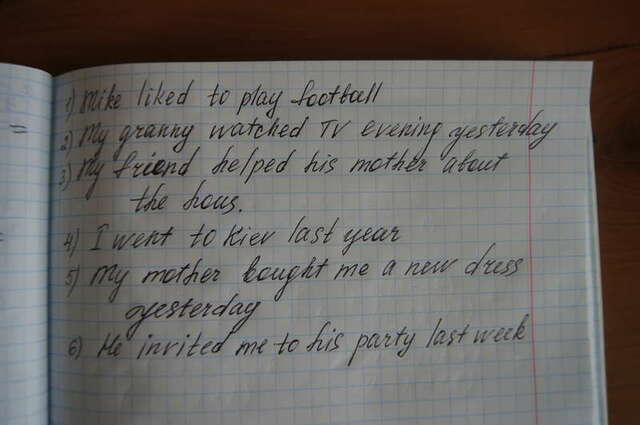 1) Mike liked to play football
2) My granny watched TV evening yesterday
3) My friend helped his mother about
the hous.
4) I went to Kiev last year
5) My mother bought me a new dress
yesterday
6) He invited me to his party last week